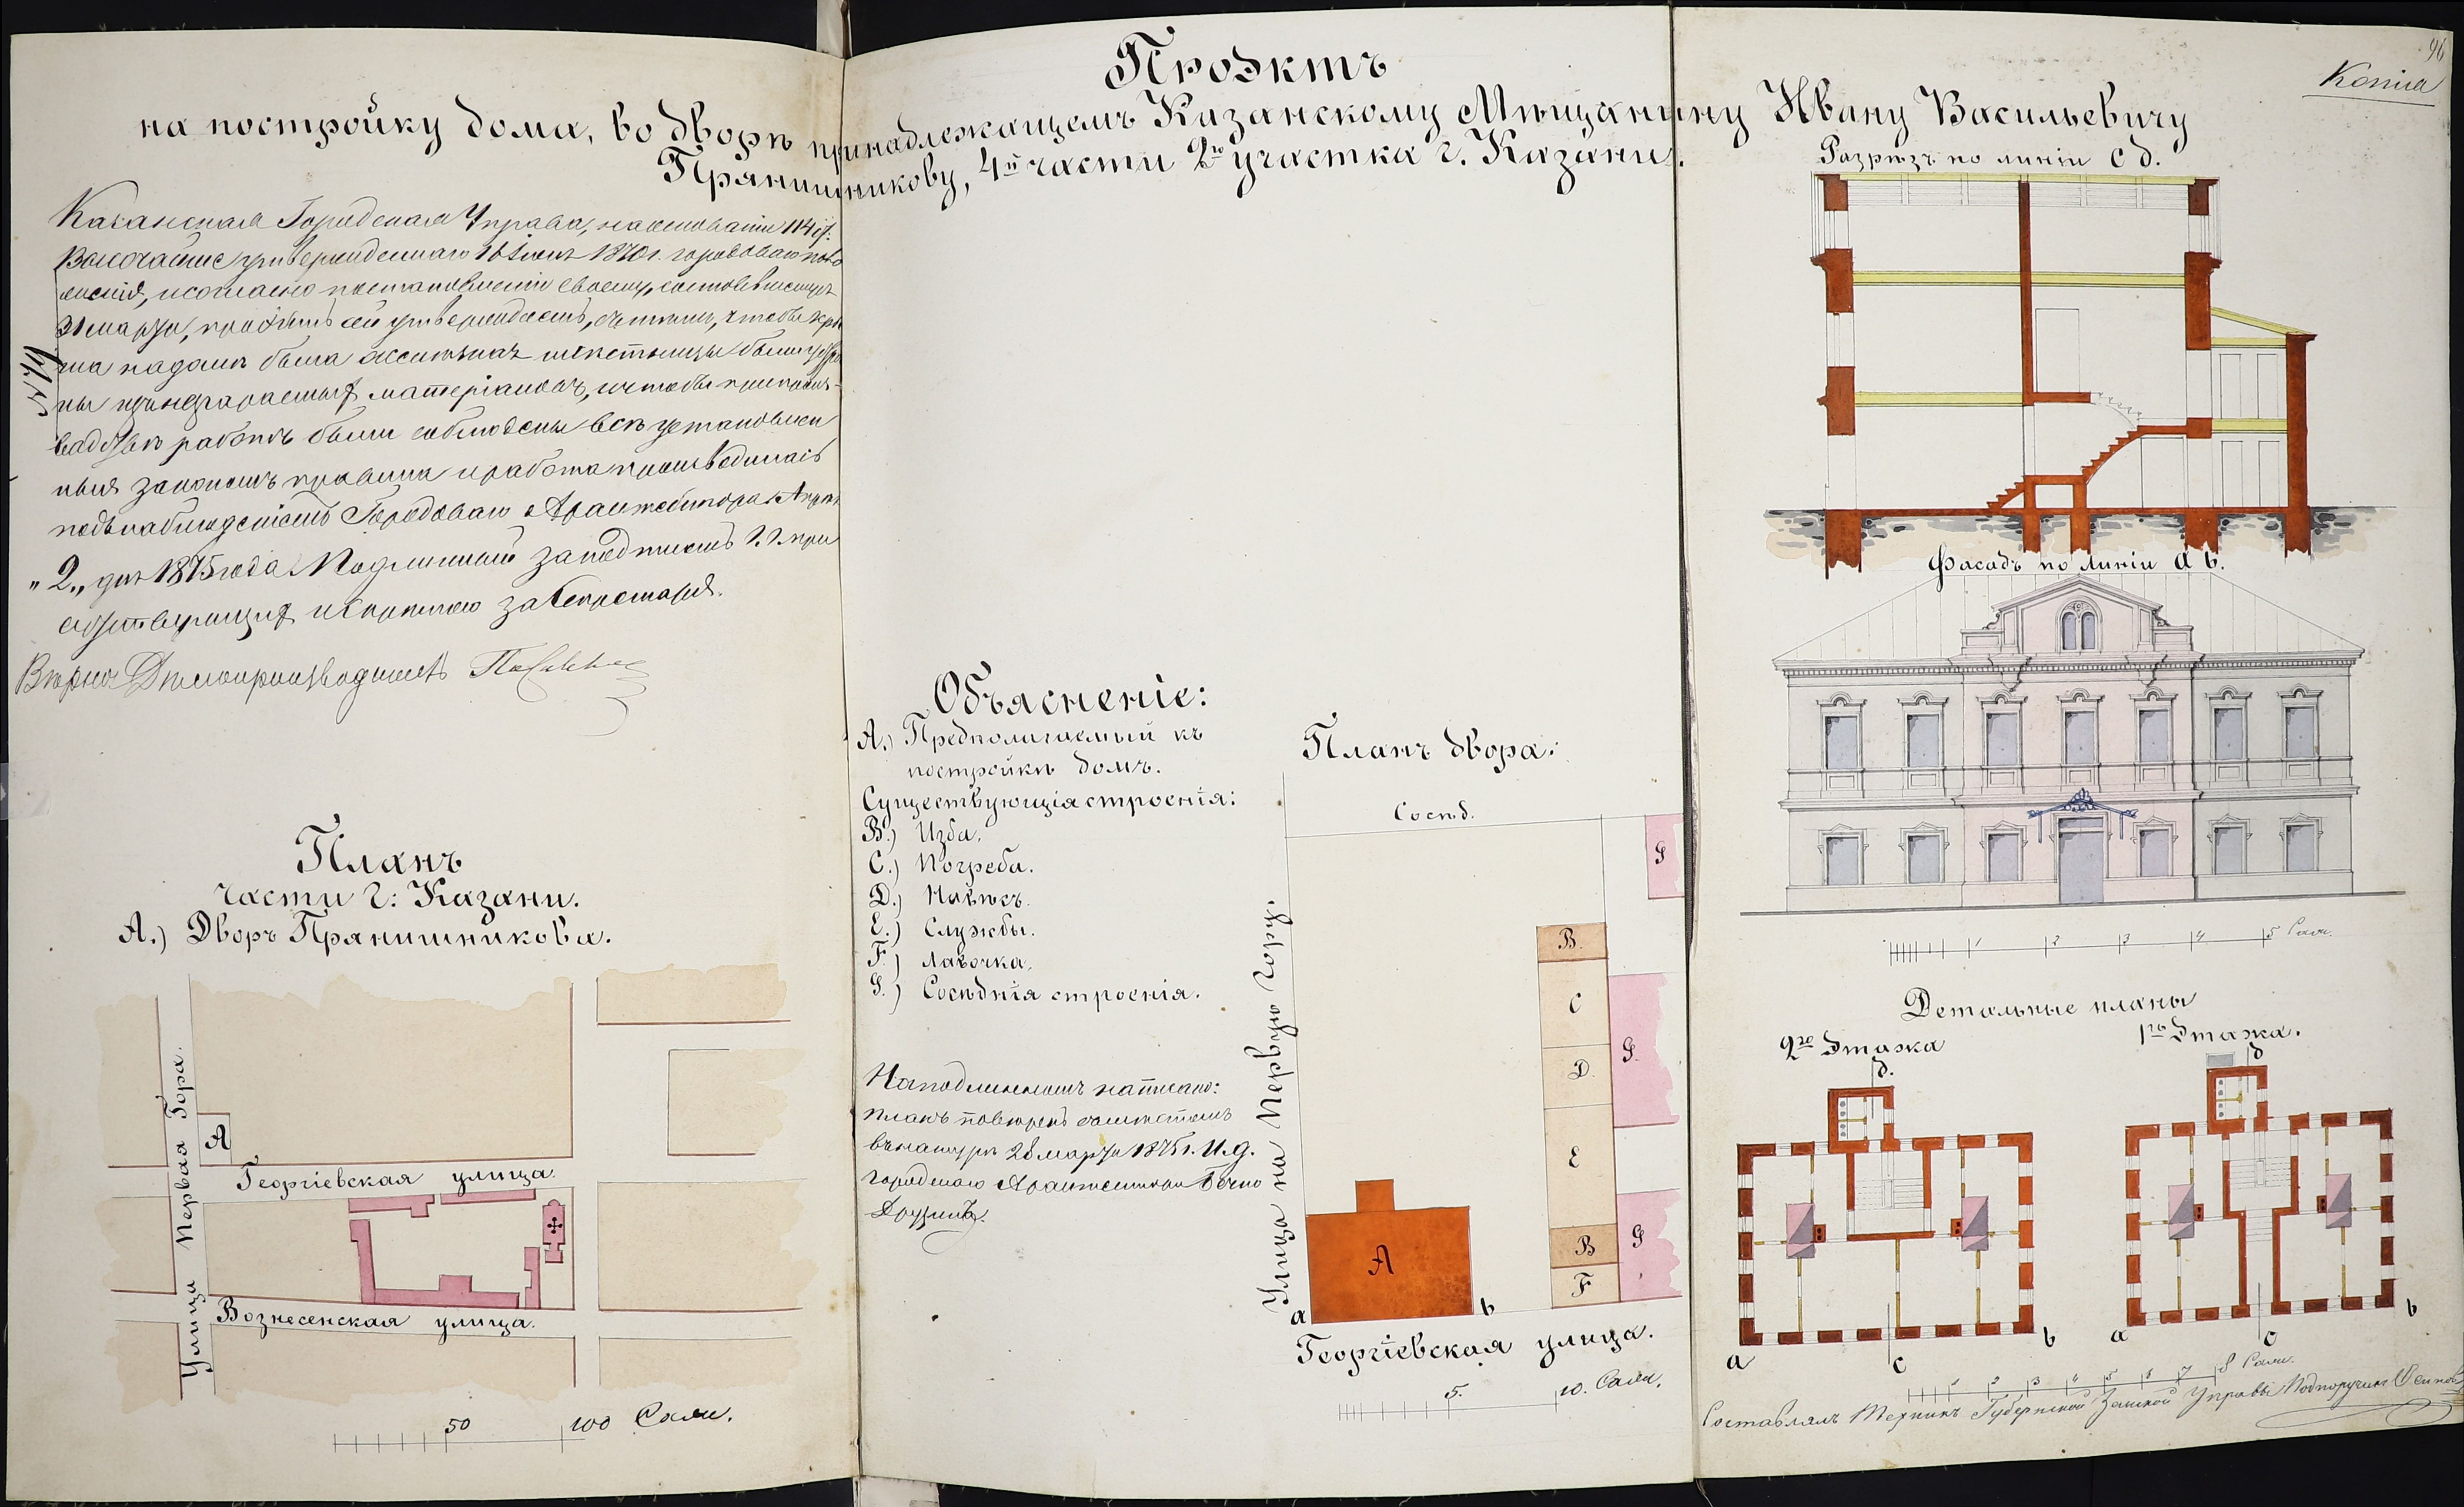 96
Копiя
Проэктъ
на постройку дома, во дворѣ принадлежащемъ Казанскому Мѣщанину Ивану Васильевичу
Прянишникову, 4й части 2го участка г. Казани.
Казанская Городская Управа, на основанiи 114 ст.
Высочайше утвержденнаго 16 Iюня 1870 г. городоваго поло
женiя, и согласно постановленiю своему, состоявшемуся
31 марта, проэктъ сей утверждаетъ, съ тѣмъ, чтобы кры
ша на домѣ была и лѣстницы были устрое
ны изъ несгараемыхъ матерiаловъ, и чтобы при произ-
водствѣ работъ были соблюдены всѣ установлен
ныя закономъ правила и работа производилась
подъ наблюденiемъ Городоваго Архитектора. Апрѣля
„2„ дня 1875 года. Подлинный за подписью Г.г. при
сутствующихъ и скрѣпою за Секретаря.
Вѣрно: Дѣлопроизводитель
Планъ
части г: Казани.
А.) Дворъ Прянишникова.
Улица Первая Гора.
А
Георгiевская улица.
Вознесенская улица.
50 100 Саж.
Объясненiе:
А.) Предполагаемый къ
постройкѣ домъ.
Существующiя строенiя:
В.) Изба.
С.) Погреба.
D.) Навѣсъ.
Е.) Службы.
F.) Лавочка.
G.) Сосѣднiя строенiя.
На подлинномъ написано:
планъ повѣренъ съ мѣстомъ
въ натурѣ 28 марта 1875 г. И.д.
городскаго Архитектора Бечко
Друзинъ.
Планъ двора:
Сосѣд.
Улица на Первую гору.
G
B.
C
G.
D.
E
B
G
F
A
a b
Георгiевская улица.
5. 10. Саж.
Разрѣзъ по линiи c d.
Фасадъ по линiи a b.
1 2 3 4 5 Саж.
Детальные планы
2го Этажа
1го Этажа.
d.
d
a c b
a c b
1 2 3 4 5 6 7 8 Саж.
Составлялъ Техникъ Губернской Земской Управы Подпоручикъ Осиповъ